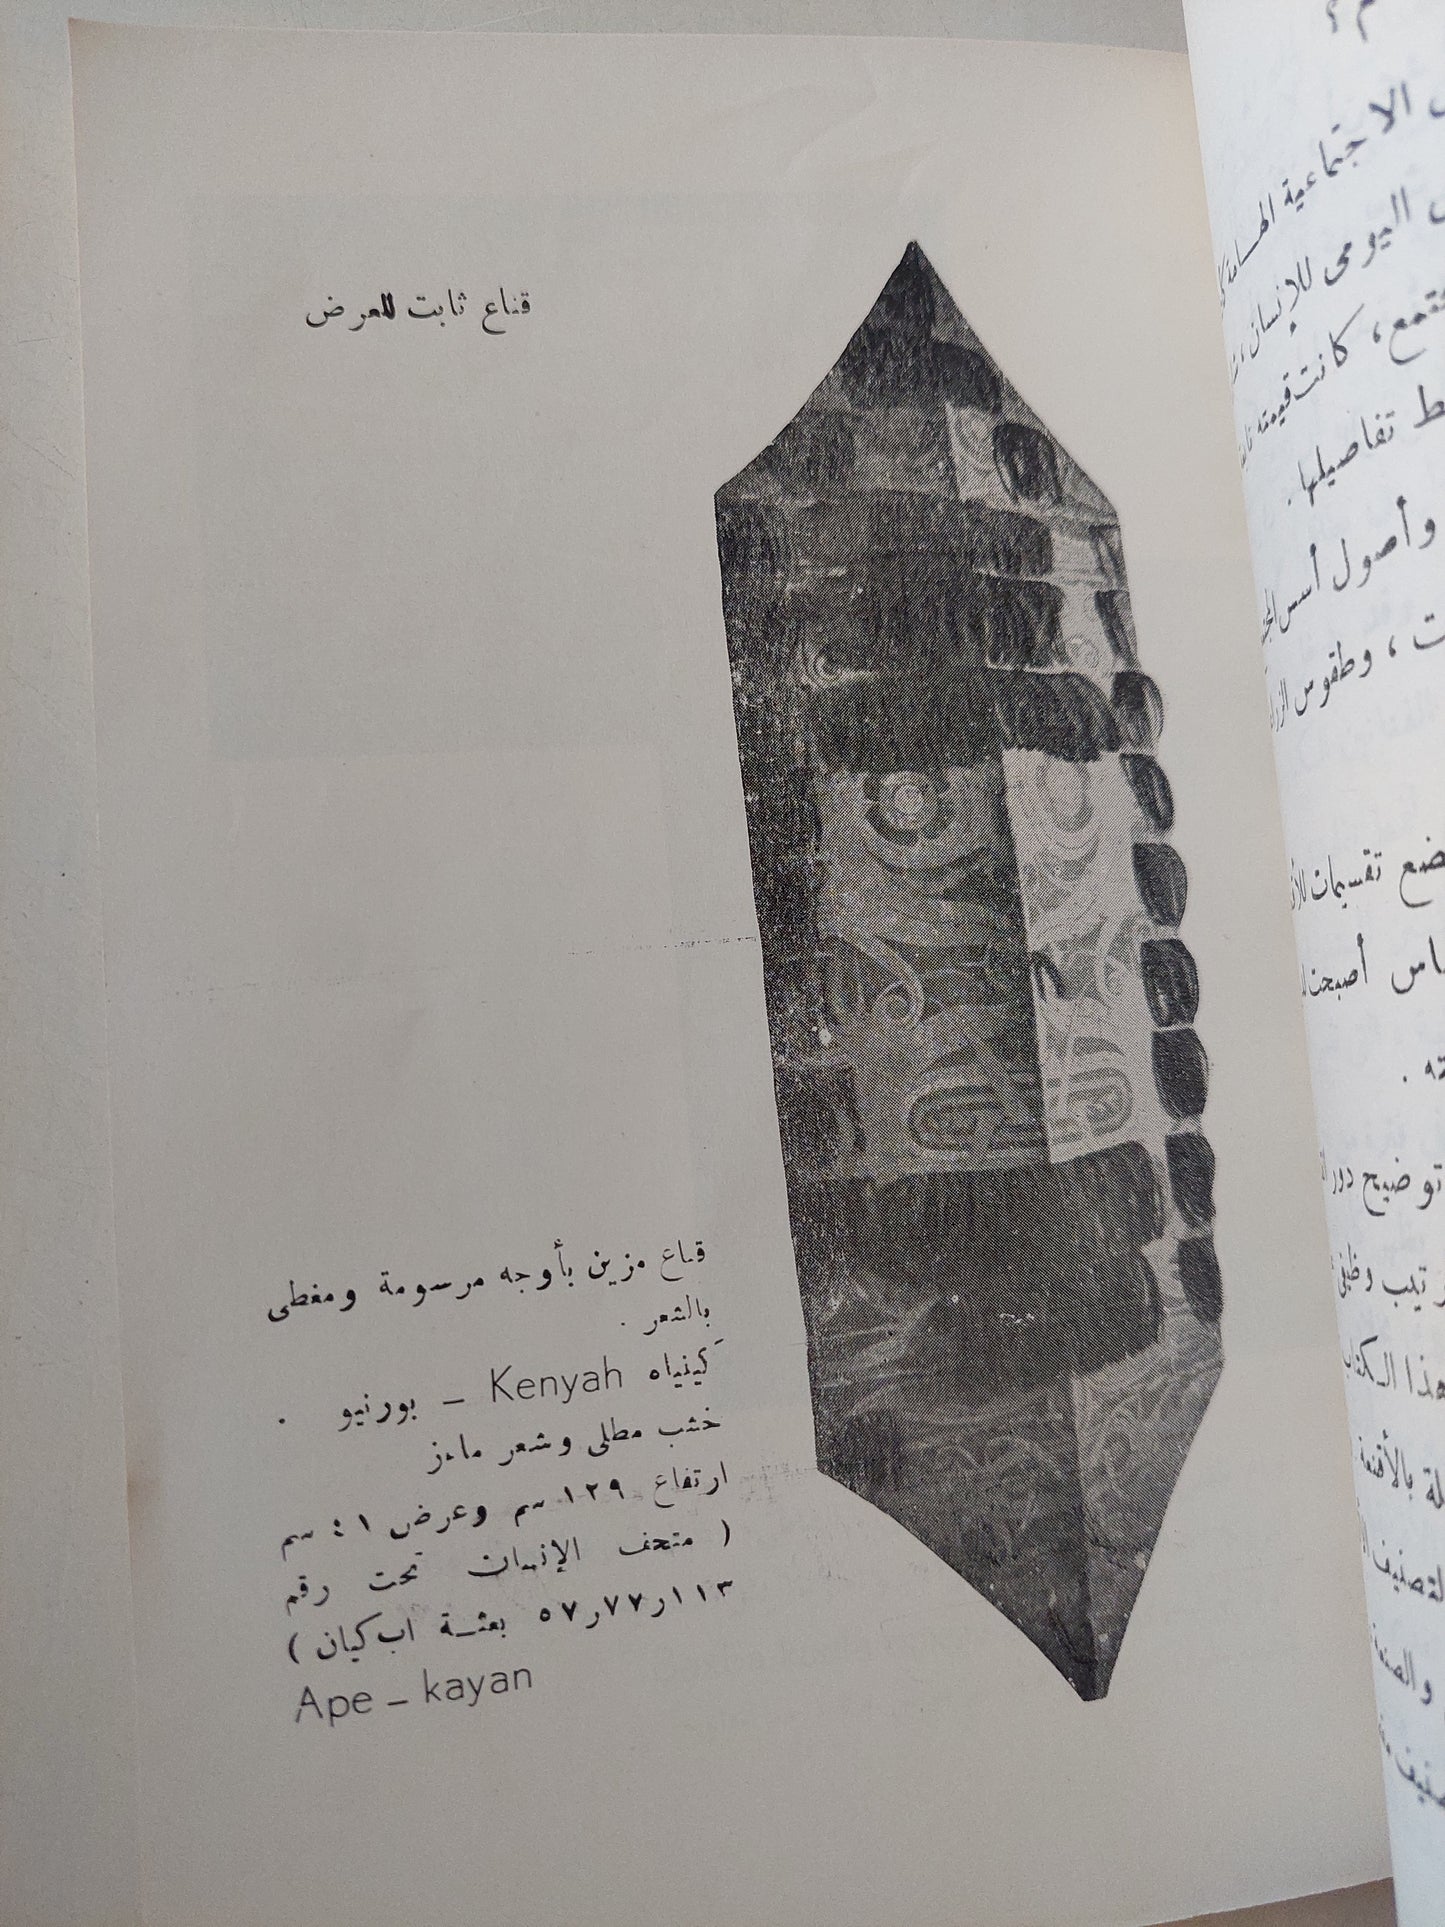 قناع ثابت للعرض
قناع مزين بأوجه مرسومة ومغطى
بالشعر .
كينياه Kenyah – بورنيو .
خشب مطلى وشعر ماعز
ارتفاع ١٢٩ سم وعرض ٤١ سم
( متحف الإنسان تحت رقم
١١٣ر٧٧ر٥٧ بعثة اب كيان )
Ape – kayan
الاجتماعية الهامة
اليومى للإنسان ،
، كانت قيمته
تفاصيلها .
وأصول أسس
، وطقوس
تقسيمات
أصبحت
توضيح دور
هذا الكتاب
بالأقنعة